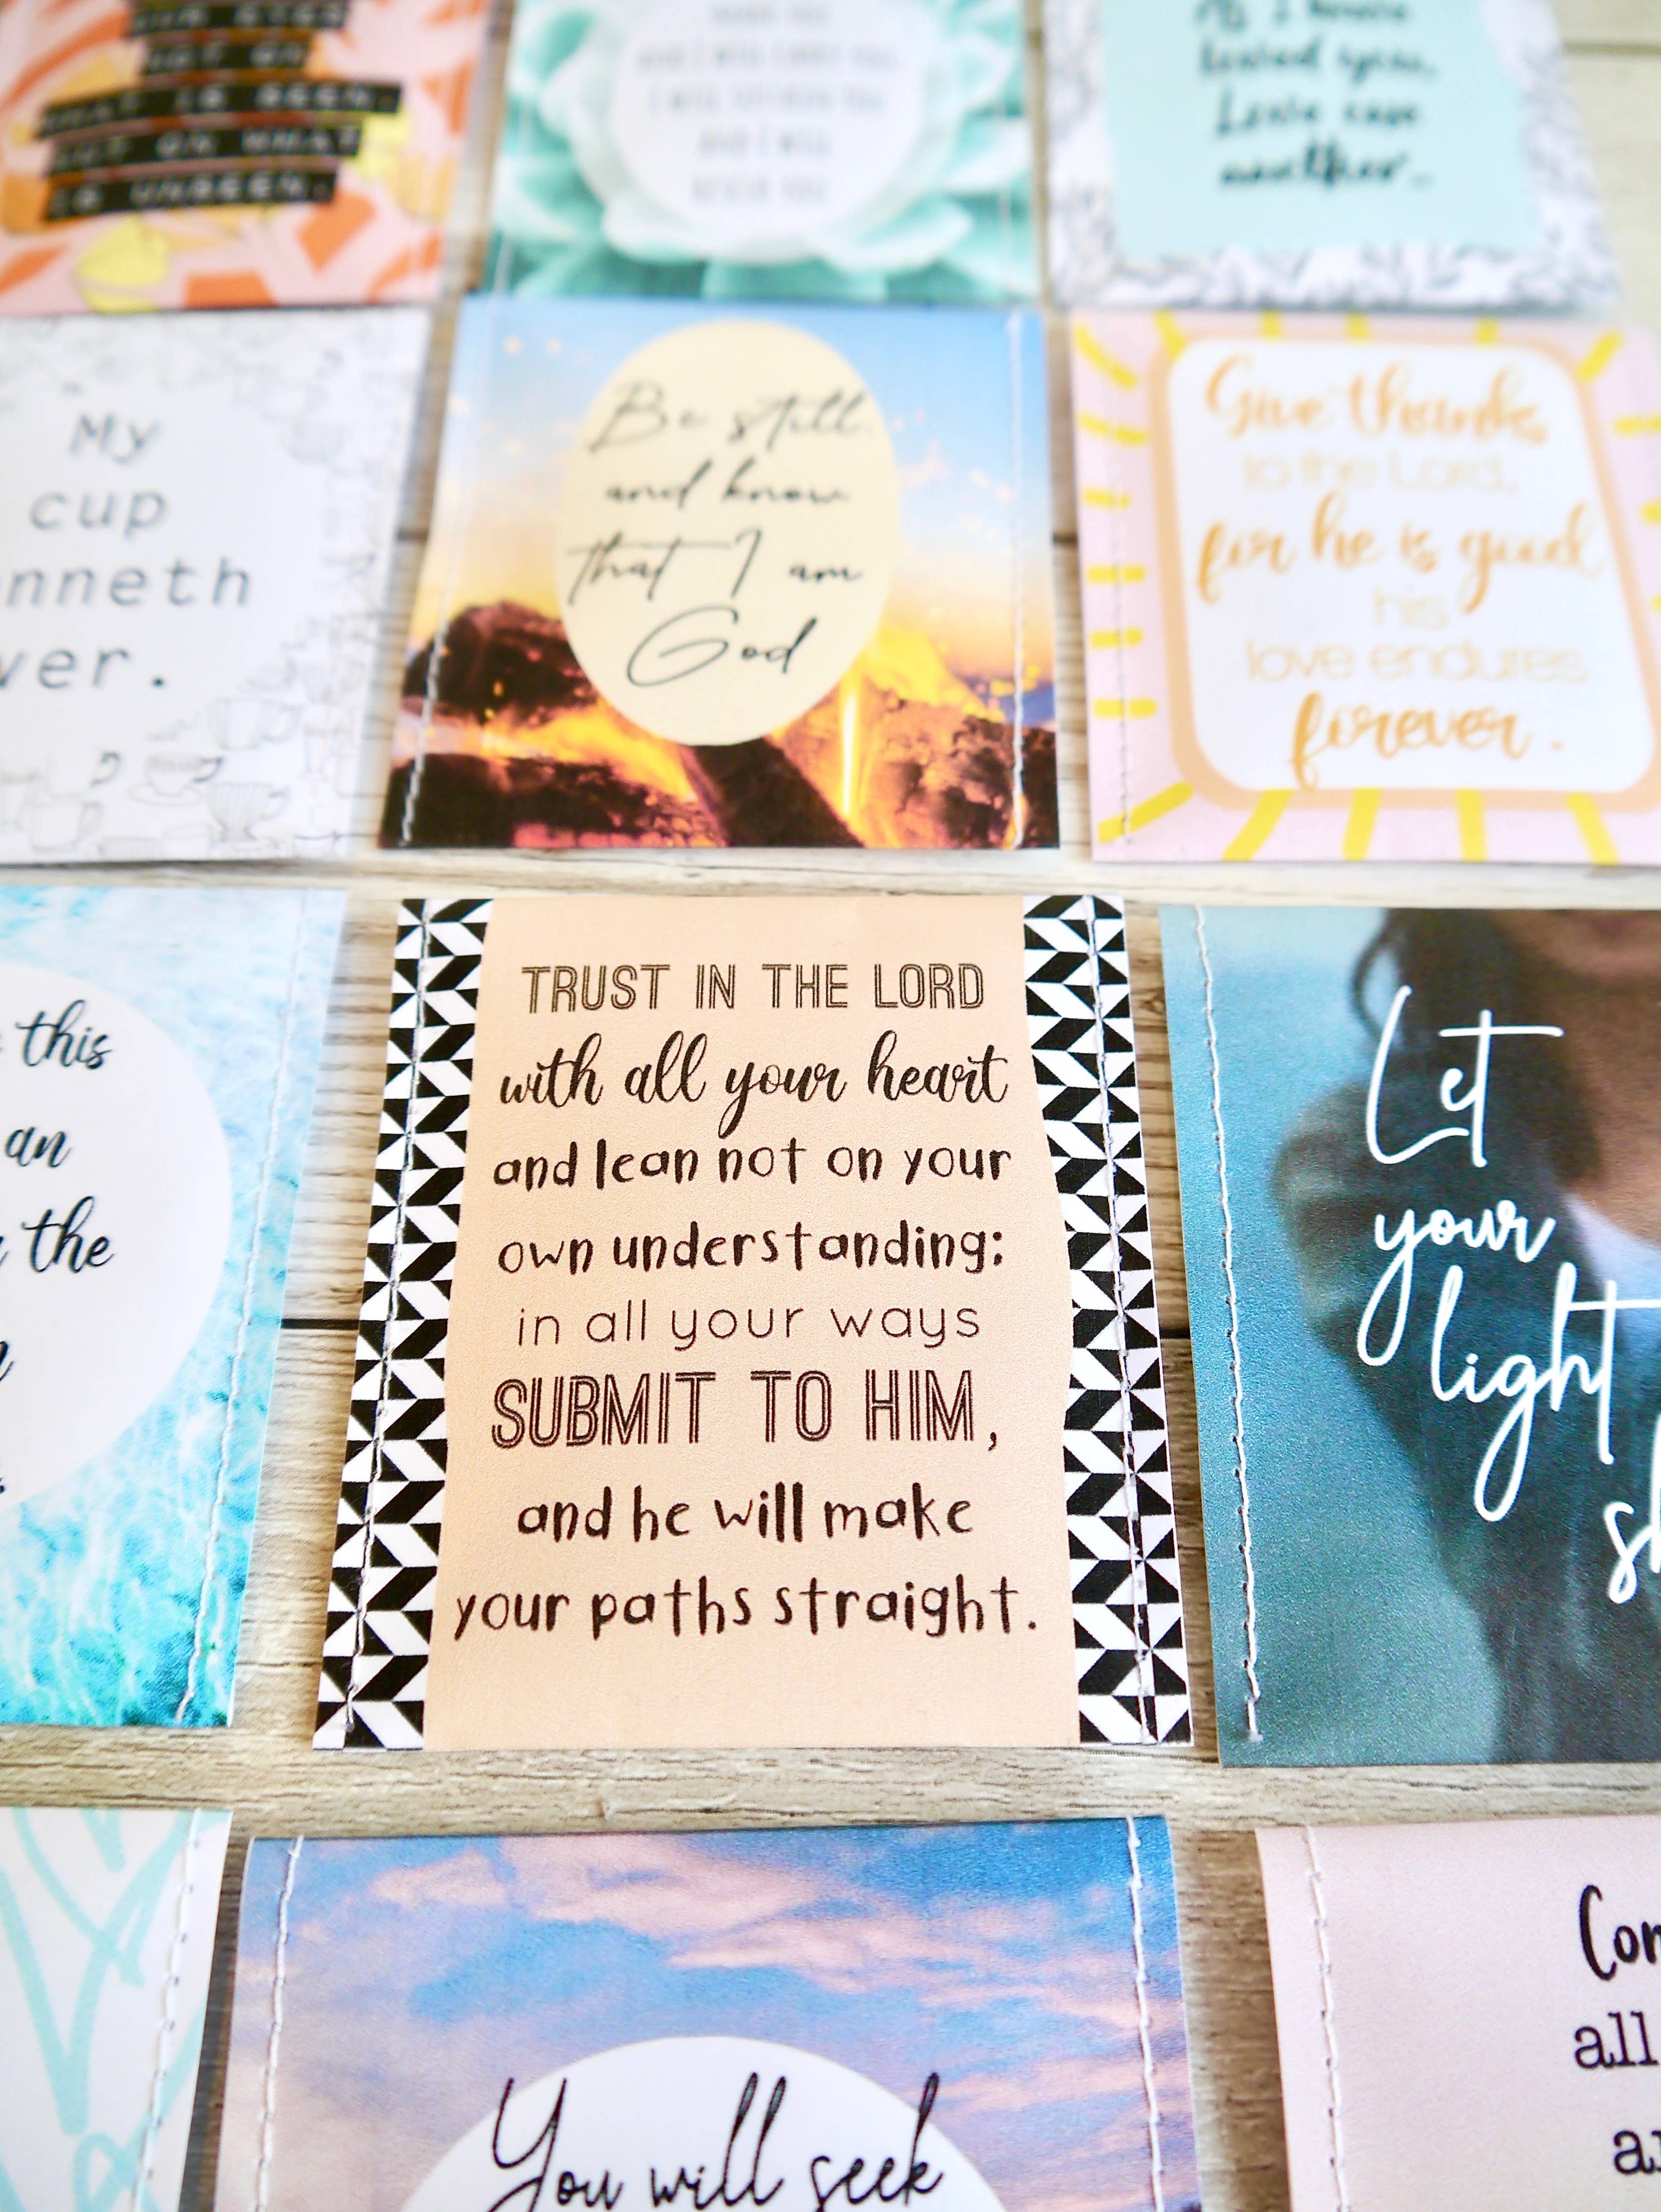 OUR EYES
NOT ON
WHAT IS SEEN,
BUT ON WHAT
IS UNSEEN.
AND I WILL
As I have
loved you,
Love one
another.
My
cup
nneth
ver.
Be still,
and know
that I am
God
Give thanks
to the Lord,
for he is good
his
love endures
forever.
this
an
the
TRUST IN THE LORD
with all your heart
and lean not on your
own understanding:
in all your ways
SUBMIT TO HIM,
and he will make
your paths straight.
Let
your
light
sh
You will seek
Com
all